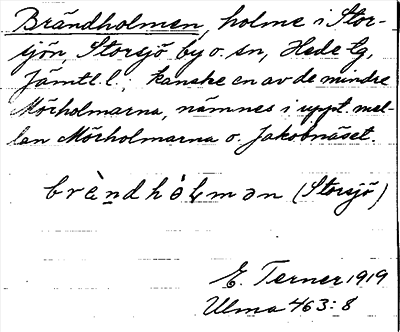 Brändholmen, holme i Stor-
sjön Storsjö by o. sn, Hede tg,
Jämtl. l.; kanske en av de mindre
Mörholmarna, nämnes i uppt. mel-
lan Mörholmarna o. Jakobnäset.
brè̱ndhòlmən (Storsjö)
E. Terner 1919
Ulma 463:8